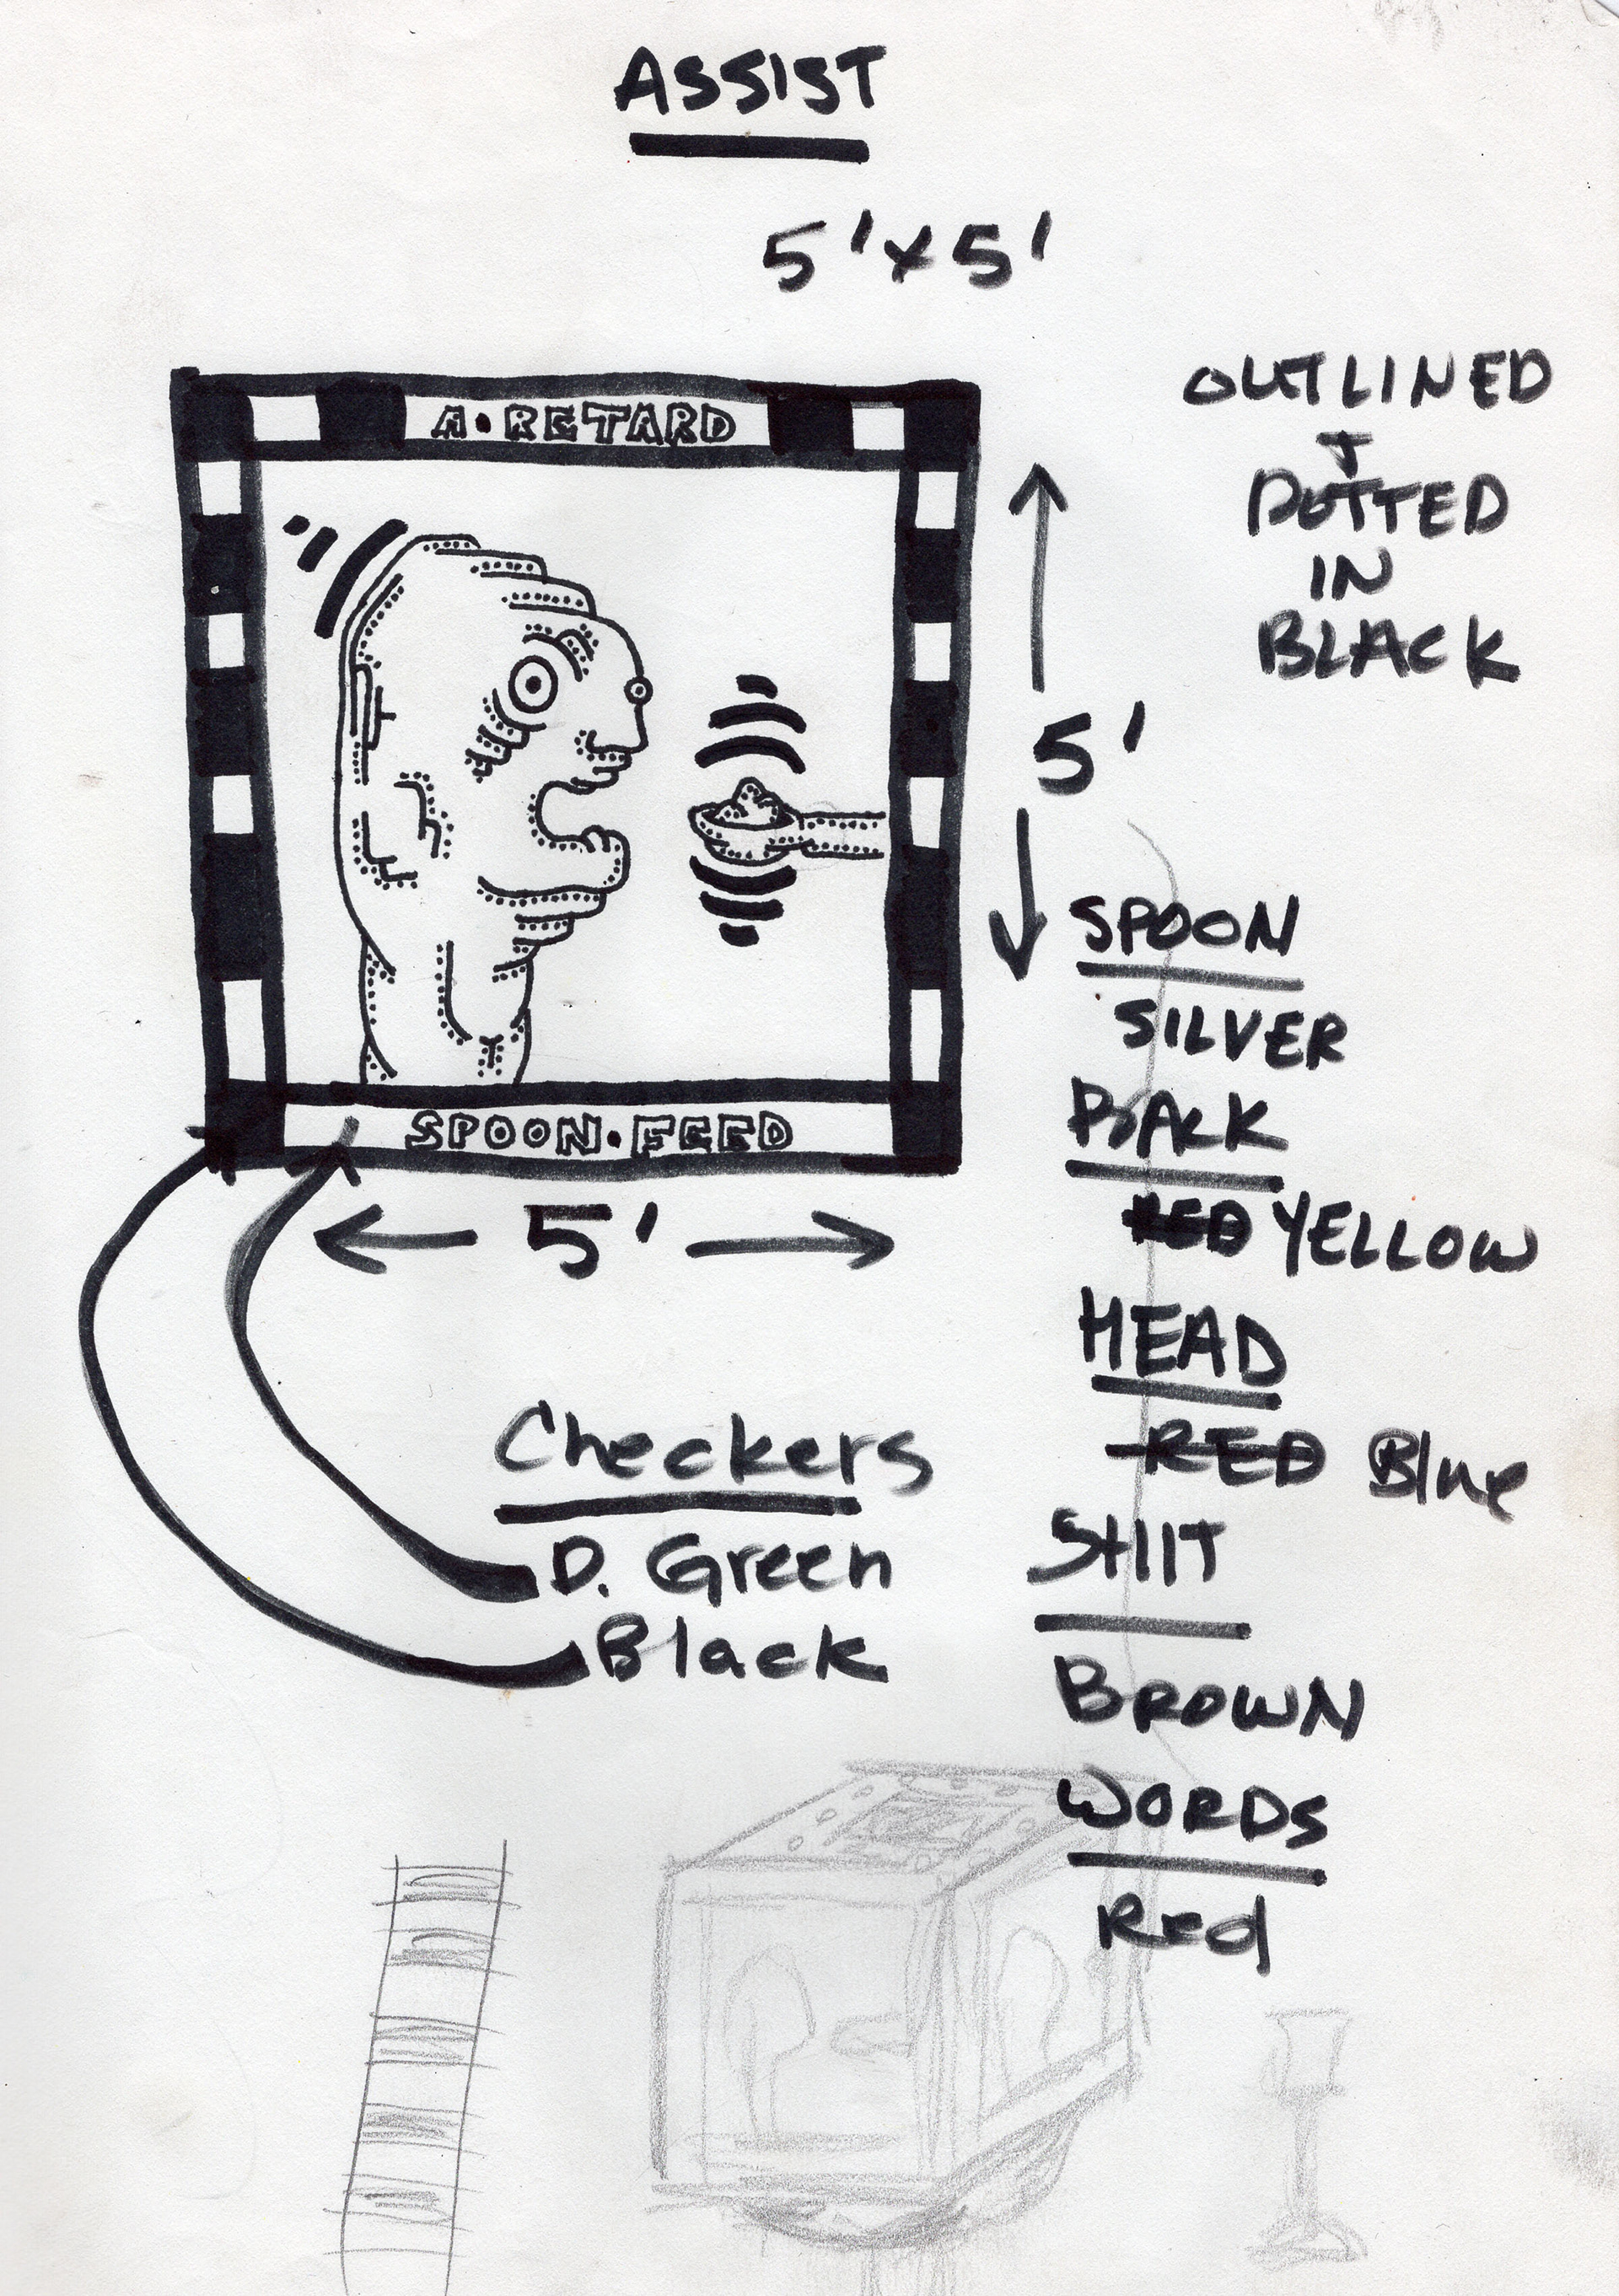 ASSIST
5'x5'
A·RETARD
SPOON·FEED
5'
5'
OUTLINED
+
DOTTED
IN
BLACK
SPOON
SILVER
BACK
RED YELLOW
HEAD
RED Blue
SHIT
BROWN
WORDS
Red
Checkers
D. Green
Black